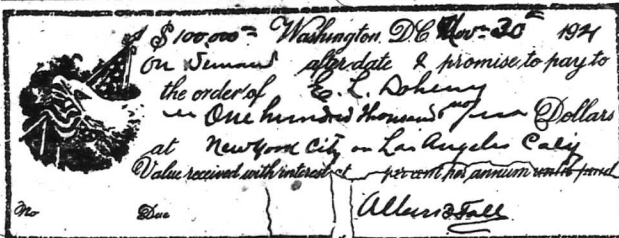 $100,000 00 Washington, D.C. Nov- 30th 1921
On Demand after date I promise to pay to
the order of E. L. Doheny
One hundred thousand no/100 Dollars
at New York City or Los Angeles Calif
Value received with interest at percent per annum until paid
No Due Albert B Fall